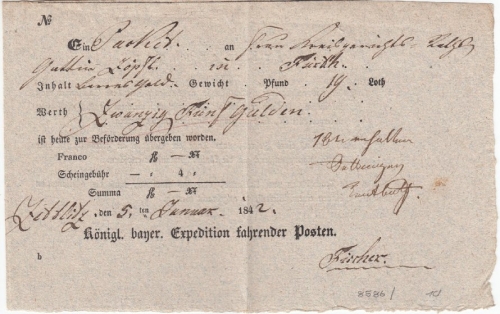 №
Ein Packet an Herrn Kreisgerichts-Raths
Gattin Zöpfl in Fürth
Inhalt Gewicht Pfund 19 Loth
Werth Zwanzig Fünf Gulden
ist heute zur Beförderung übergeben worden.
Franco fl — kr
Scheingebühr —„ 4„
Summa fl — kr
den 5. ten Januar 1842.
Königl. bayer. Expedition fahrender Posten.
b
Fischer
8586/